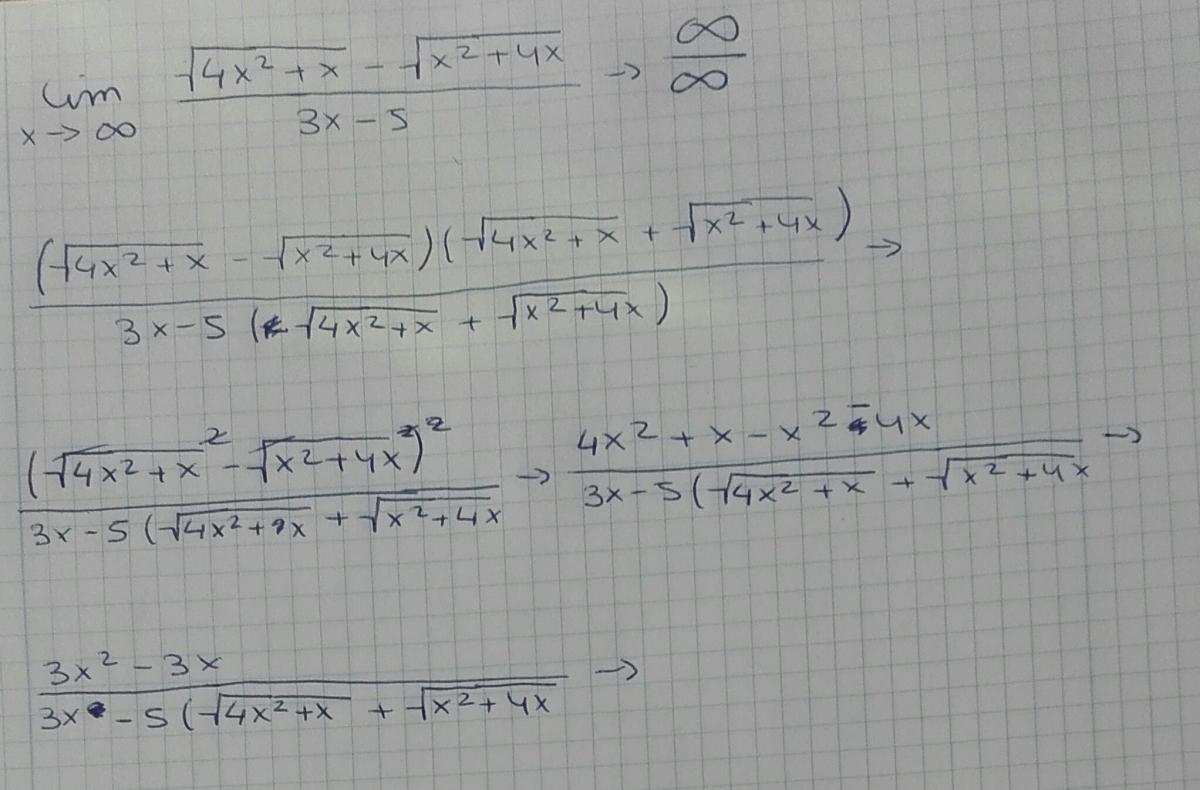 lim x→∞ (√(4x²+x) - √(x²+4x)) / (3x-5) → ∞/∞
(√(4x²+x) - √(x²+4x))(√(4x²+x) + √(x²+4x)) / 3x-5 (√(4x²+x) + √(x²+4x)) →
(√(4x²+x)² - √(x²+4x))² / 3x-5 (√(4x²+x) + √(x²+4x) → 4x²+x-x²-4x / 3x-5 (√(4x²+x) + √(x²+4x) →
3x²-3x / 3x-5 (√(4x²+x) + √(x²+4x) →